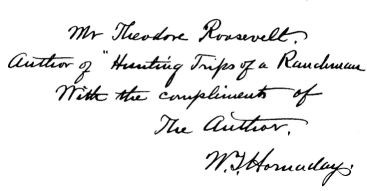 Mr Theodore Roosevelt.
Author of "Hunting Trips of a Ranchman
With the compliments of
The Author.
W.T. Hornaday.